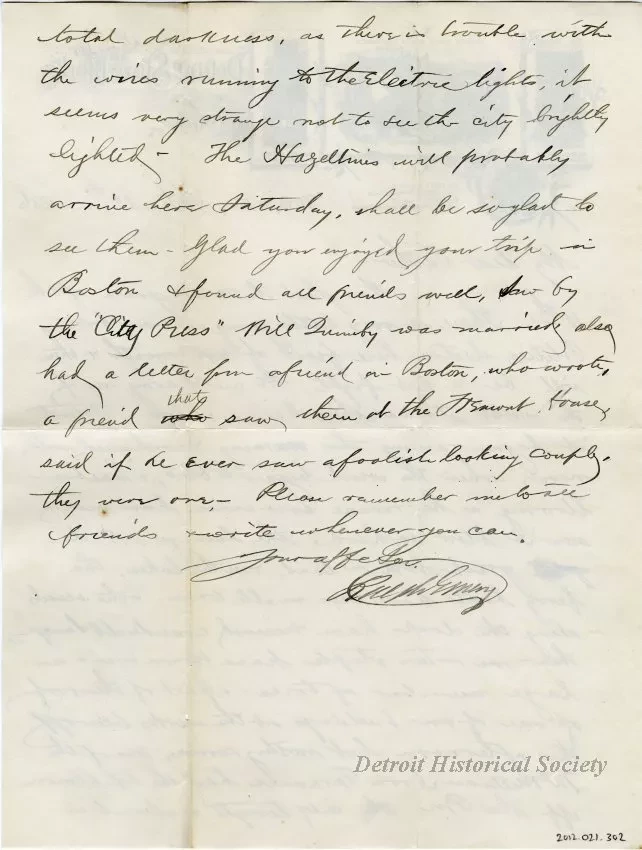 total darkness, as there is trouble with
the wires running to the Electric lights, it
seems very strange not to see the city brightly
lighted - The Hazeltines will probably
arrive here Saturday, shall be so glad to
see them - Glad you enjoyed your trip in
Boston & found all friends well, Saw by
the "City Press" Will Quimby was married, also
had a letter from a friend in Boston, who wrote,
a friend who thats saw them at the Tremont House,
said if he ever saw a foolish looking couple,
they were one, - Please remember me to all
friends write whenever you can.
Your affc Son.
Ralph Emery
Detroit Historical Society
2012.021.302